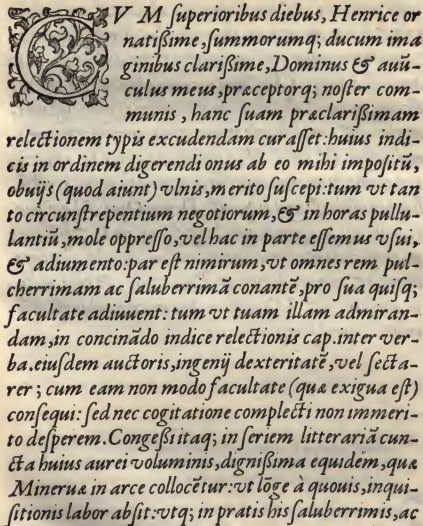 CVM ſuperioribus diebus, Henrice or
natißime, ſummorumq; ducum ima
ginibus clarißime, Dominus & auū
culus meus, præceptorq; noſter com-
munis, hanc ſuam præclarißimam
relectionem typis excudendam curaſſet: huius indi-
cis in ordinem digerendi onus ab eo mihi impoſitū,
obuijs (quod aiunt) vlnis, merito ſuſcepi: tum vt tan
to circunſtrepentium negotiorum, & in horas pullu-
lantiū, mole oppreſſo, vel hac in parte eſſemus vſui,
& adiumento: par eſt nimirum, vt omnes rem pul-
cherrimam ac ſaluberrimā conantē, pro ſua quiſq;
facultate adiuuent: tum vt tuam illam admiran-
dam, in concināndo indice relectionis cap. inter ver-
ba. eiuſdem auctoris, ingenij dexteritatē, vel ſecta-
rer; cum eam non modo facultate (quæ exigua eſt)
conſequi: ſed nec cogitatione complecti non immeri-
to deſperem. Congeßi itaq; in ſeriem litterariā cun-
cta huius aurei voluminis, dignißima equidem, quæ
Mineruæ in arce collocētur: vt lōge à quouis, inqui-
ſitionis labor abſit: vtq; in pratis his ſaluberrimis, ac